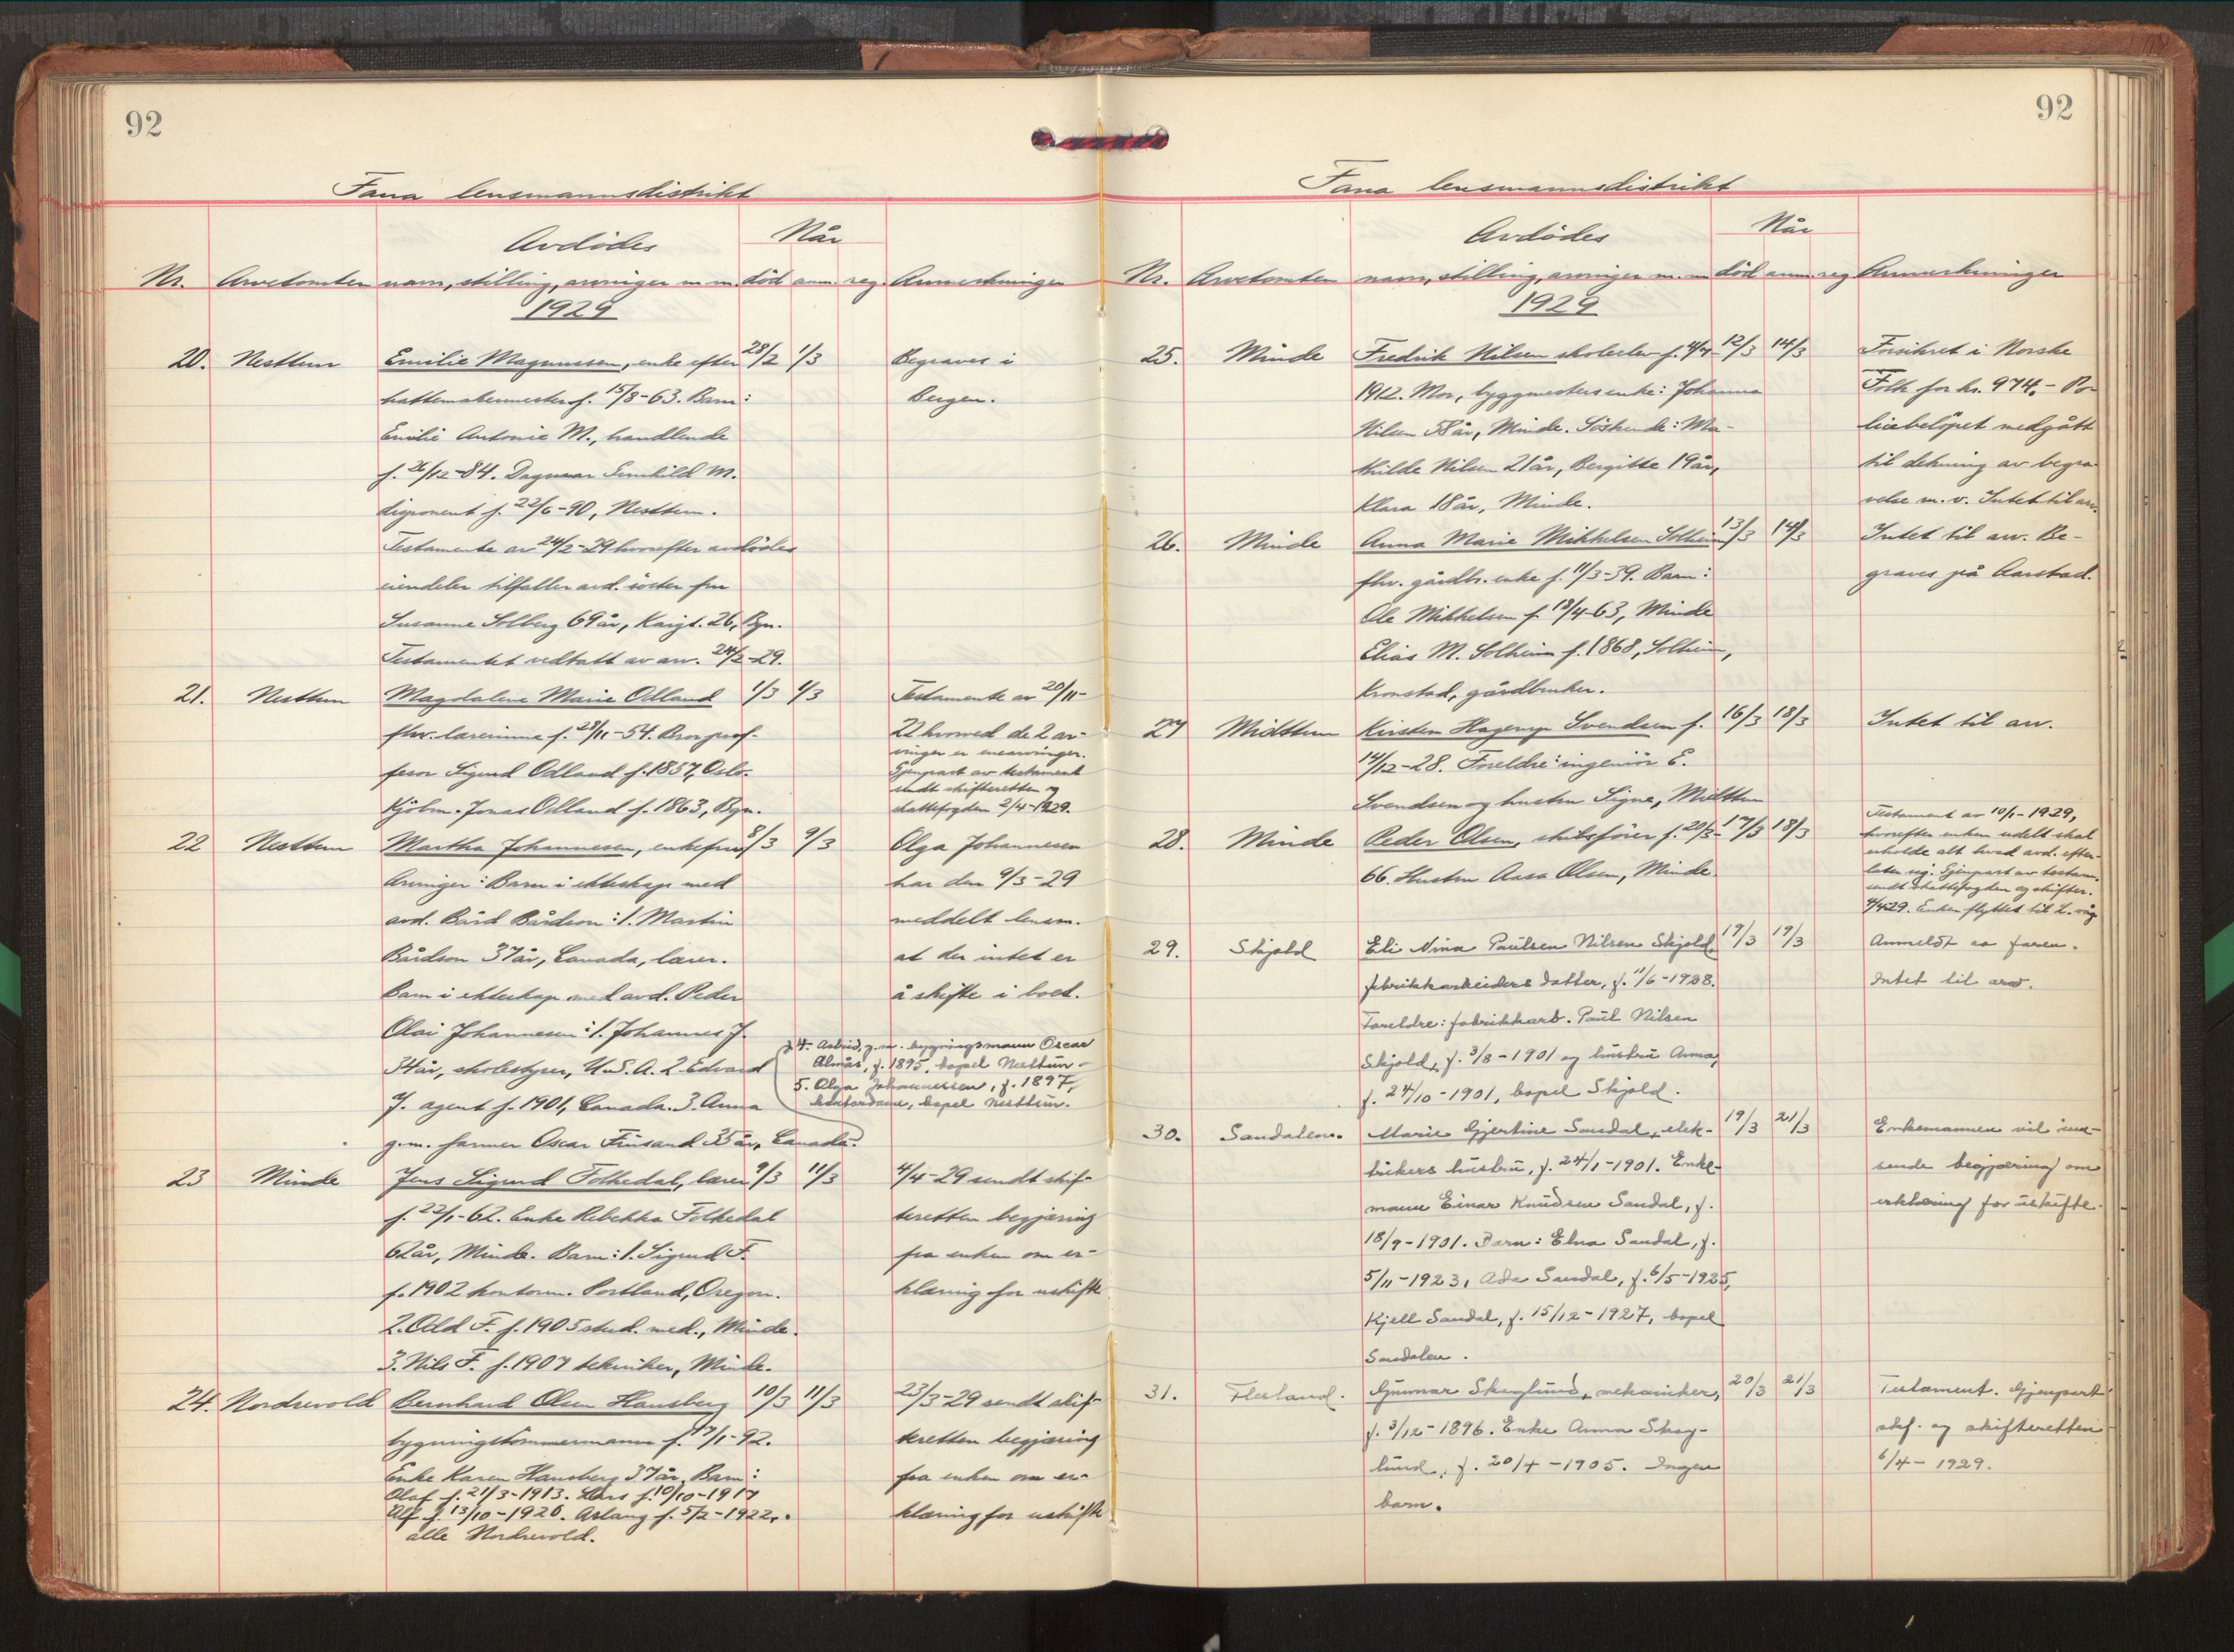 92
Fana lensmannsdistrikt
Avdødes
Når
Nr. Arvetomten navn, stilling, arvinger m. m. død anm. reg. Anmerkninger
1929
20. Nesttun Emilie Magnussen, enke efter 28/2 1/3 Begraves i
hattemakermester f. 15/8-63. Barn: Bergen.
Emilie Antonie M., handlende
f. 26/12-84. Dagmar M.
disponent f. 22/6-90, Nesttun.
Testamente av 24/2-29 hvorefter avdødes
eiendeler tilfaller avd. søster fru
Susanne Solberg 69 år, 26, Bgn.
Testamentet vedtatt av arv. 24/2-29.
21. Nesttun Magdalene Marie Odland 1/3 4/3 Testamente av 20/11-
fhv. lærerinne f. 28/11-54. Bror prof- 22 hvorved de 2 ar-
vinger er enearvinger.
fesor Sigurd Odland f. 1857, Oslo. Gjenpart av testament
sendt skifteretten og
Kjøbm. Jonas Odland f. 1863, Bgn. skattefogden 2/4-1929.
22 Nesttun Martha Johannesen, enkefru 8/3 9/3 Olga Johannesen
Arvinger: Barn i ekteskap med har den 9/3-29
avd. Bård Bårdson: 1. Martin meddelt lensm.
Bårdson 37 år, Canada, lærer. at der intet er
Barn i ekteskap med avd. Peder å skifte i boet.
Olai Johannesen: 1. Johannes J.
34 år, skolestyrer, U.S.A. 2. Edvard
J. agent f. 1901, Canada. 3. Anna
g.m. farmer Oscar Finsand 35 år, Canada.
4. Astrid, g.m. bygningsmann Oscar
Almås, f. 1895, bopel Nesttun -
5. Olga Johannessen, f. 1897,
kontordame, bopel Nesttun.
23 Minde Jens Sigurd Folkedal, lærer 9/3 11/3 4/4-29 sendt skif-
f. 22/1-62. Enke Rebekka Folkedal teretten begjæring
62 år, Minde. Barn: 1. Sigurd F. fra enken om er-
f. 1902 kontorm. Portland, Oregon. klæring for uskifte.
2. Odd F. f. 1905 stud. med., Minde.
3. Nils F. f. 1907 tekniker, Minde.
24. Nordrevold Bernhard Olsen Hansberg 10/3 11/3 23/3-29 sendt skif-
bygningstømmermann f. 17/1-92. teretten begjæring
Enke Karen Hansberg 37 år, Barn: fra enken om er-
Olaf f. 21/3-1913. Lars f. 10/10-1917
Alf f. 13/10-1920. Aslaug f. 5/2-1922, klæring for uskifte
alle Nordrevold.
92
Fana lensmannsdistrikt
Avdødes
Når
Nr. Arvetomten navn, stilling, arvinger m. m. død anm. reg Anmerkninger
1929
25. Minde Fredrik Nilsen skoleelev f. 4/4- 12/3 14/3 Forsikret i Norske
1912. Mor, byggmesters enke: Johanna Folk for kr. 974,- Po-
Nilsen 58 år, Minde. Söskende: Ma- licebeløpet medgått
thilde Nilsen 21 år, Bergitte 19 år, til dekning av begra-
Klara 18 år, Minde. velse m. v. Intet til arv.
26. Minde Anna Marie Mikkelsen Solheim 13/3 14/3 Intet til arv. Be-
fhv. gårdbr. enke f. 11/3-39. Barn: graves på Aarstad.
Ole Mikkelsen f. 18/4-63, Minde
Elias M. Solheim f. 1868, Solheim,
Kronstad, gårdbruker.
27 Midttun Kirsten Svendsen f. 16/3 18/3 Intet til arv.
14/12-28. Foreldre: ingeniør E.
Svendsen og hustru Signe, Midttun
28. Minde Peder Olsen, skibsfører f. 20/3- 17/3 18/3 Testament av 10/1-1929,
hvorefter enken udelt skal
erholde alt hvad avd. efter-
66. Hustru Aasa Olsen, Minde. later sig. Gjenpart av testam.
sendt skattefogden og skifter.
4/4-29. Enken flyttet til L.våg
29. Skjold Eli Nina Paulsen Nilsen Skjold, 19/3 19/3 Anmeldt av faren.
fabrikkarbeiders datter, f. 11/6-1928. Intet til arv.
Foreldre: fabrikkarb. Paul Nilsen
Skjold, f. 3/8-1901 og hustru Anna,
f. 24/10-1901, bopel Skjold.
30. Sandalen. Marie Gjertine Sandal, elek- 19/3 21/3 Enkemannen vil inn-
trikers hustru, f. 24/1-1901. Enke- sende begjæring om
mann Einar Knudsen Sandal, f. erklæring for uskifte.
18/9-1901. Barn: Elna Sandal, f.
5/11-1923, Ada Sandal, f. 6/5-1925,
Kjell Sandal, f. 15/12-1927, bopel
Sandalen.
31. Flesland. Gunnar Skoglund, mekaniker, 20/3 21/3 Testament. Gjenpart
f. 3/12-1896. Enke Anna Skog- skf. og skifteretten
lund, f. 20/4-1905. Ingen 6/4-1929.
barn.